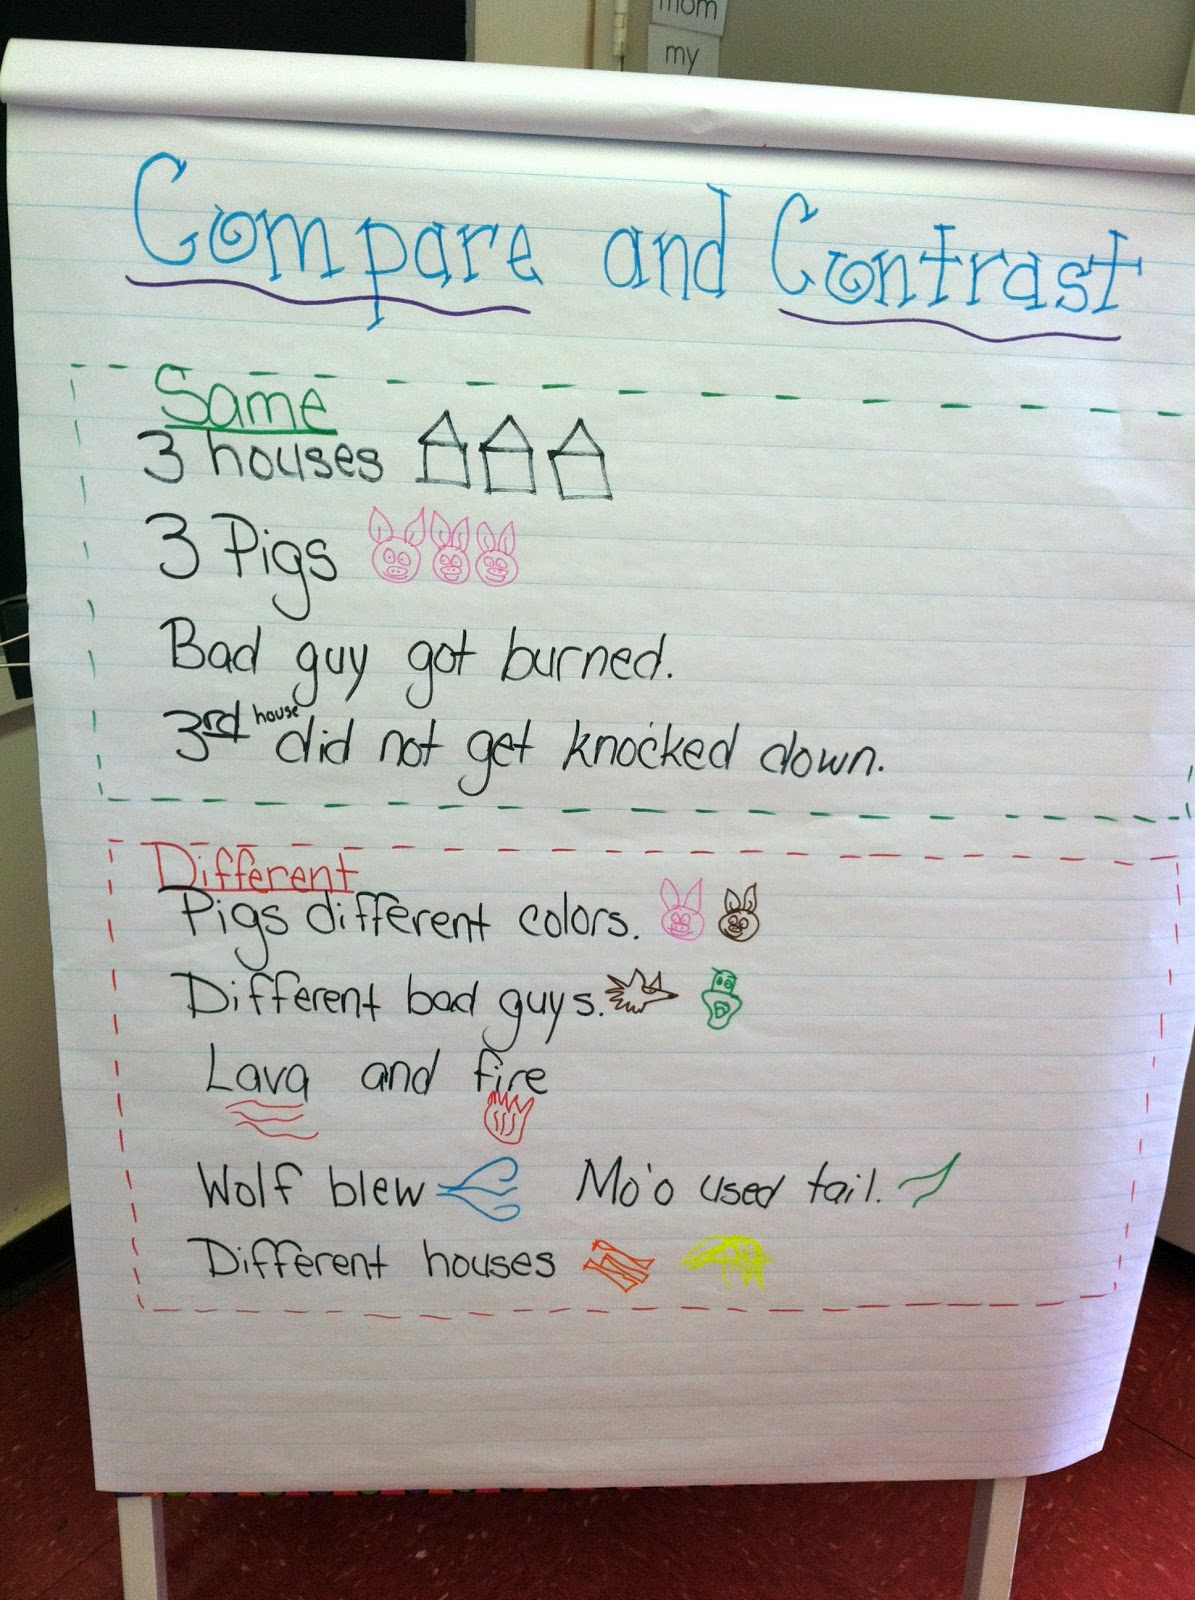 mom
my
Compare and Contrast
Same
3 houses
3 Pigs
Bad guy got burned.
3rd house did not get knocked down.
Different
Pigs different colors.
Different bad guys.
Lava and fire
Wolf blew Mo'o used tail.
Different houses